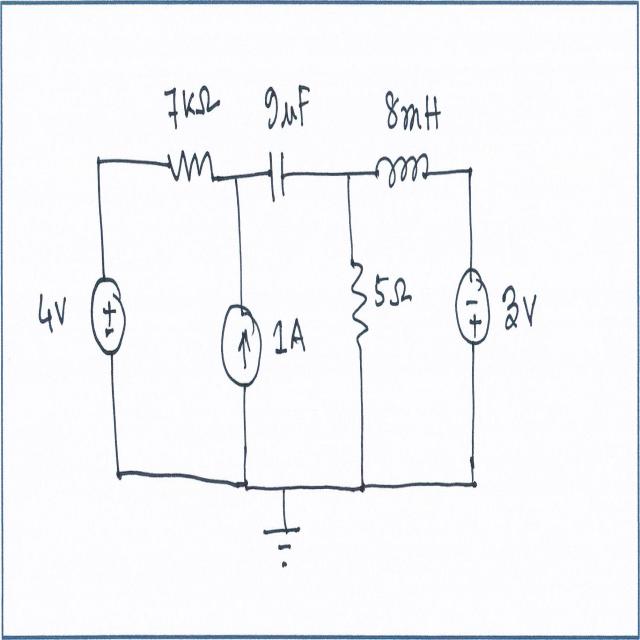 7KΩ 9μF 8mH
4V 1A 5Ω 3V